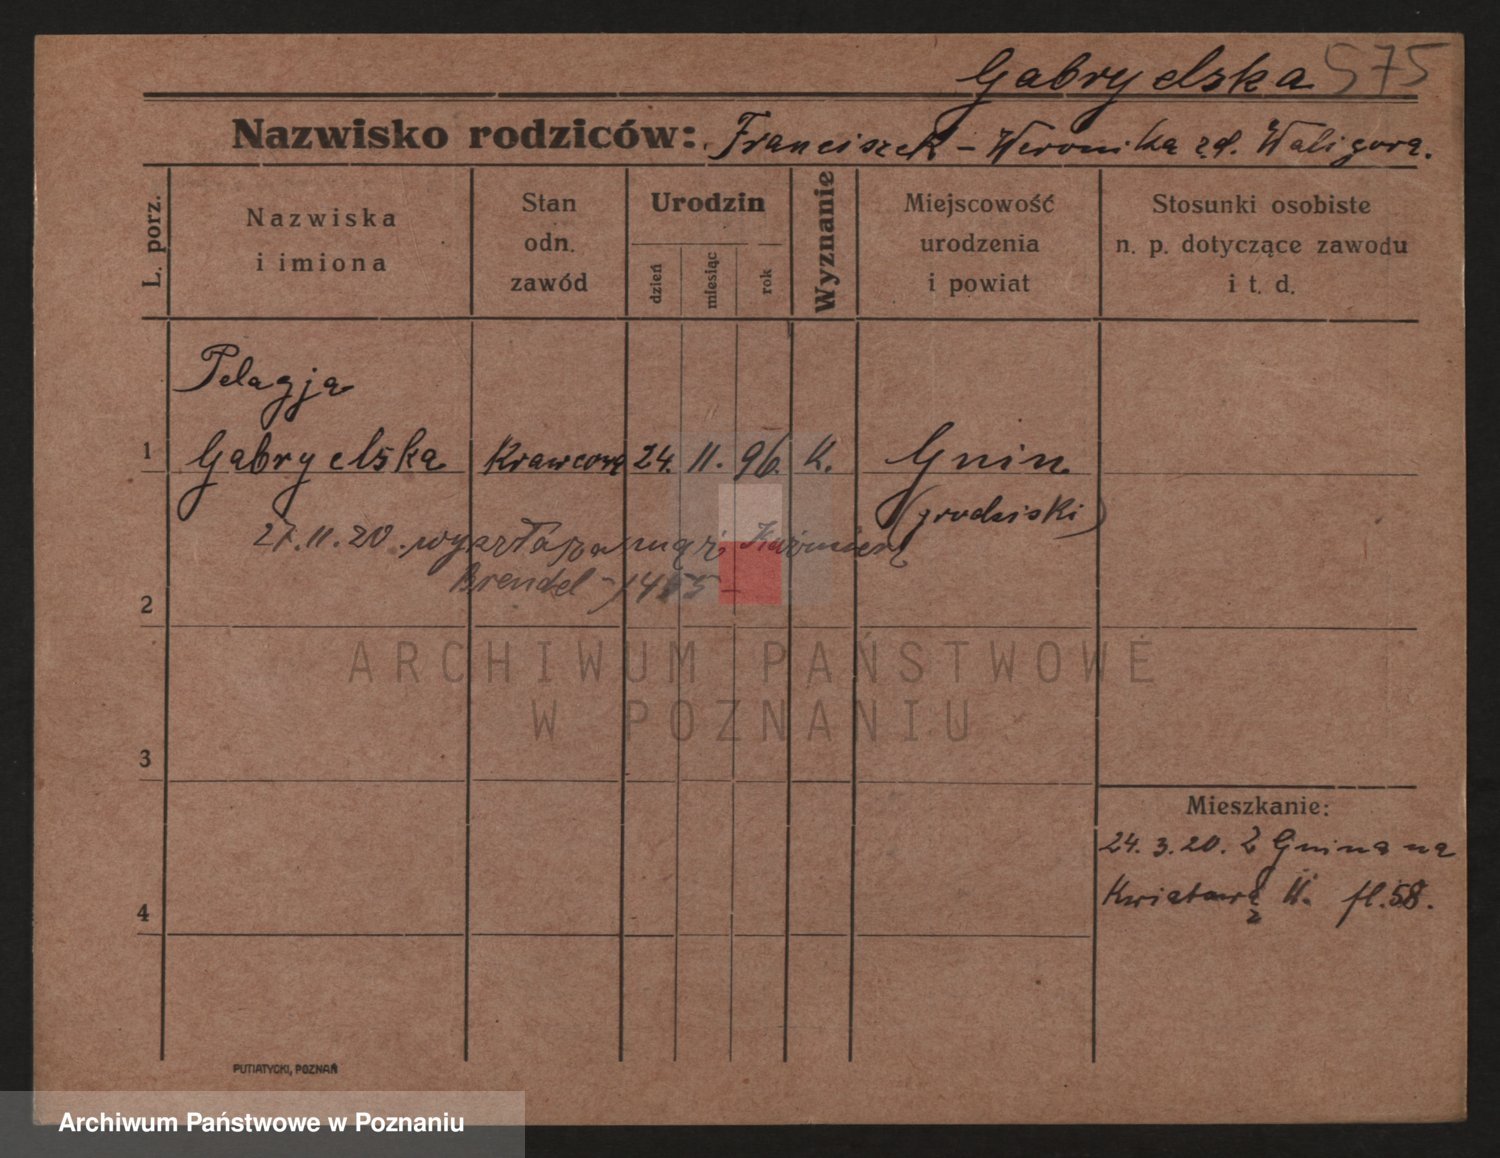 Gabryelska 575
Nazwisko rodziców: Franciszek – Weronika z d. Waligóra.
L. porz.
Nazwiska
i imiona
Stan
odn.
zawód
Urodzin
dzień
miesiąc
rok
Wyznanie
Miejscowość
urodzenia
i powiat
Stosunki osobiste
n. p. dotyczące zawodu
i t. d.
Pelagja
1 Gabryelska Krawcowa 24. 11. 96. K. Gnin
(grodziski)
27.11.20. wyszła za mąż Kazimierz
Brendel
2
3
4
Mieszkanie:
24. 3. 20. z Gnina na
Kwiatową 11. fl. 58.
PUTIATYCKI, POZNAŃ
ARCHIWUM PAŃSTWOWE
W POZNANIU
Archiwum Państwowe w Poznaniu